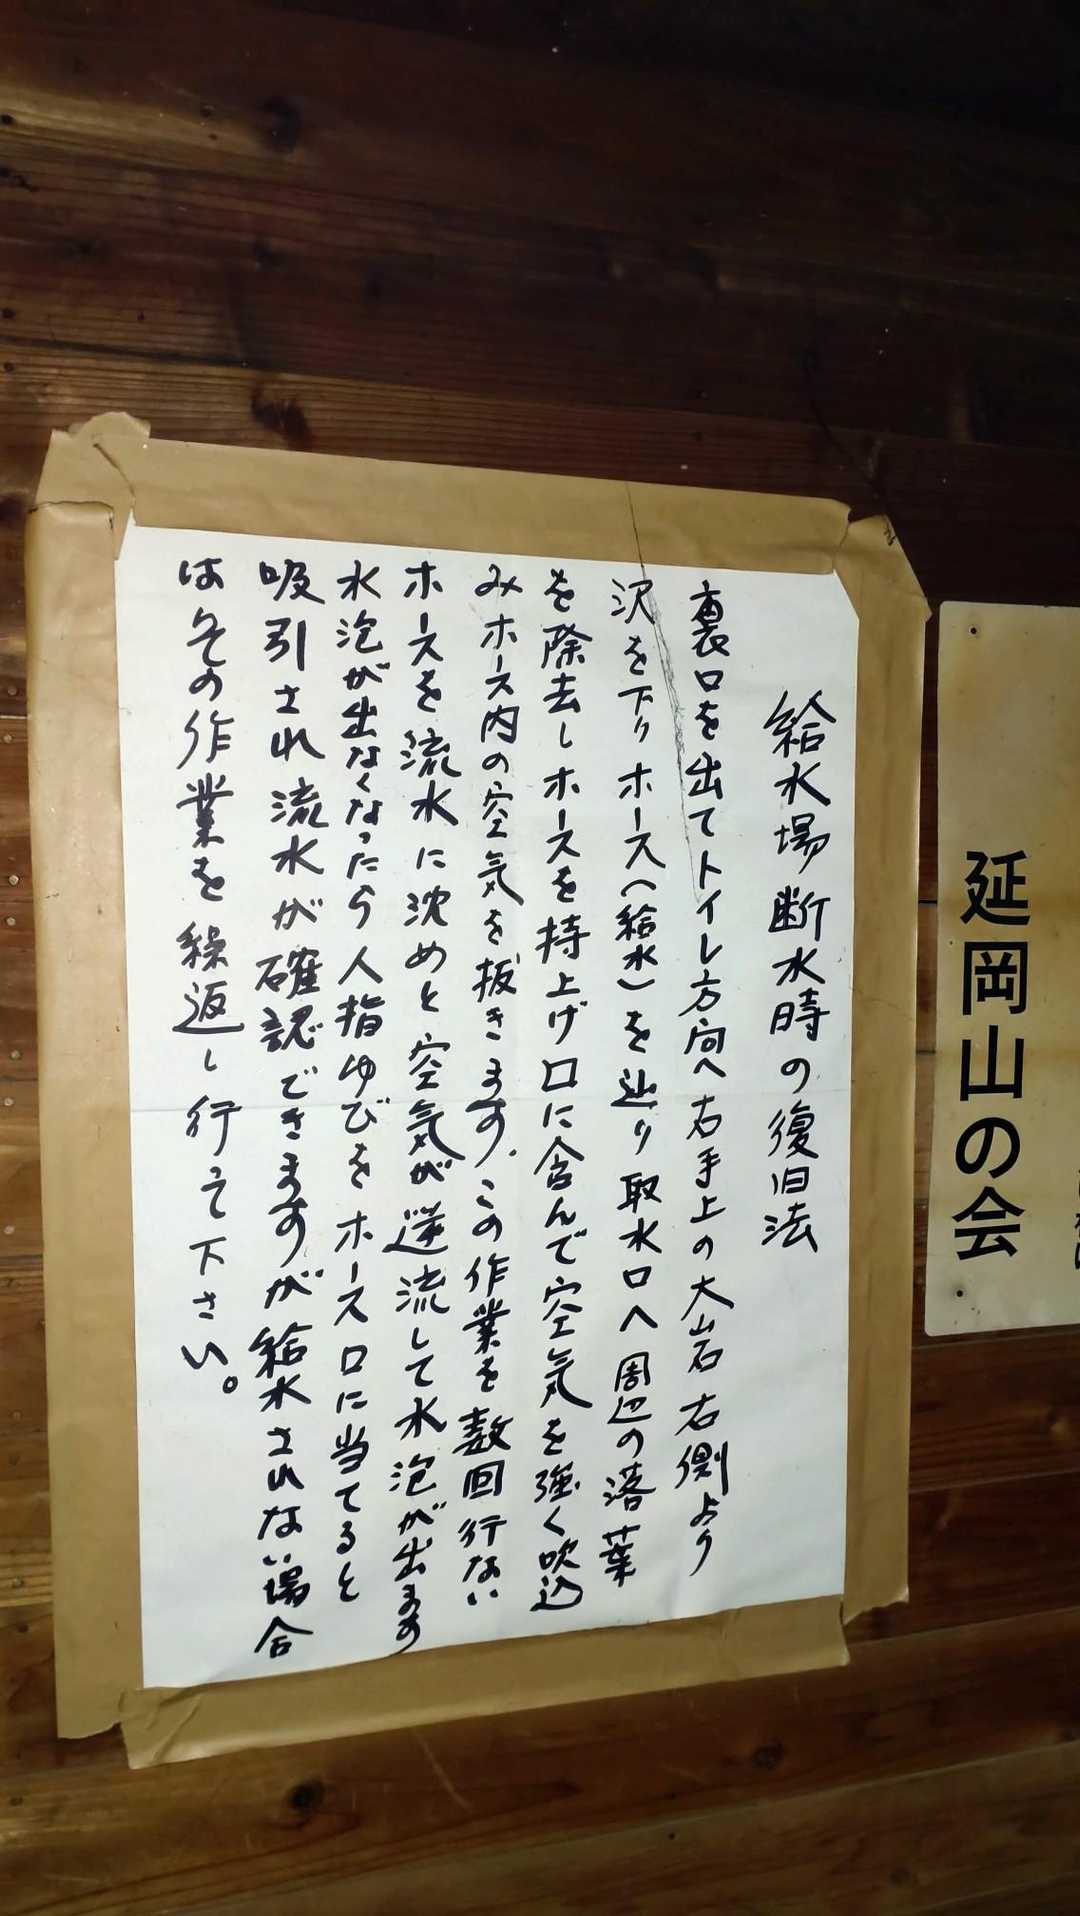 給水場断水時の復旧法
裏口を出てトイレ方向へ右手上の大岩右側より
沢を下りホース(給水)を辿り取水口へ周辺の落葉
を除去しホースを持上げ口に含んで空気を強く吹込
みホース内の空気を抜きます、この作業を数回行ない
ホースを流水に沈めと空気が逆流して水泡が出ます
水泡が出なくなったら人指ゆびをホース口に当てると
吸引され流水が確認できますが給水されない場合
はその作業を繰返し行って下さい。
延岡山の会